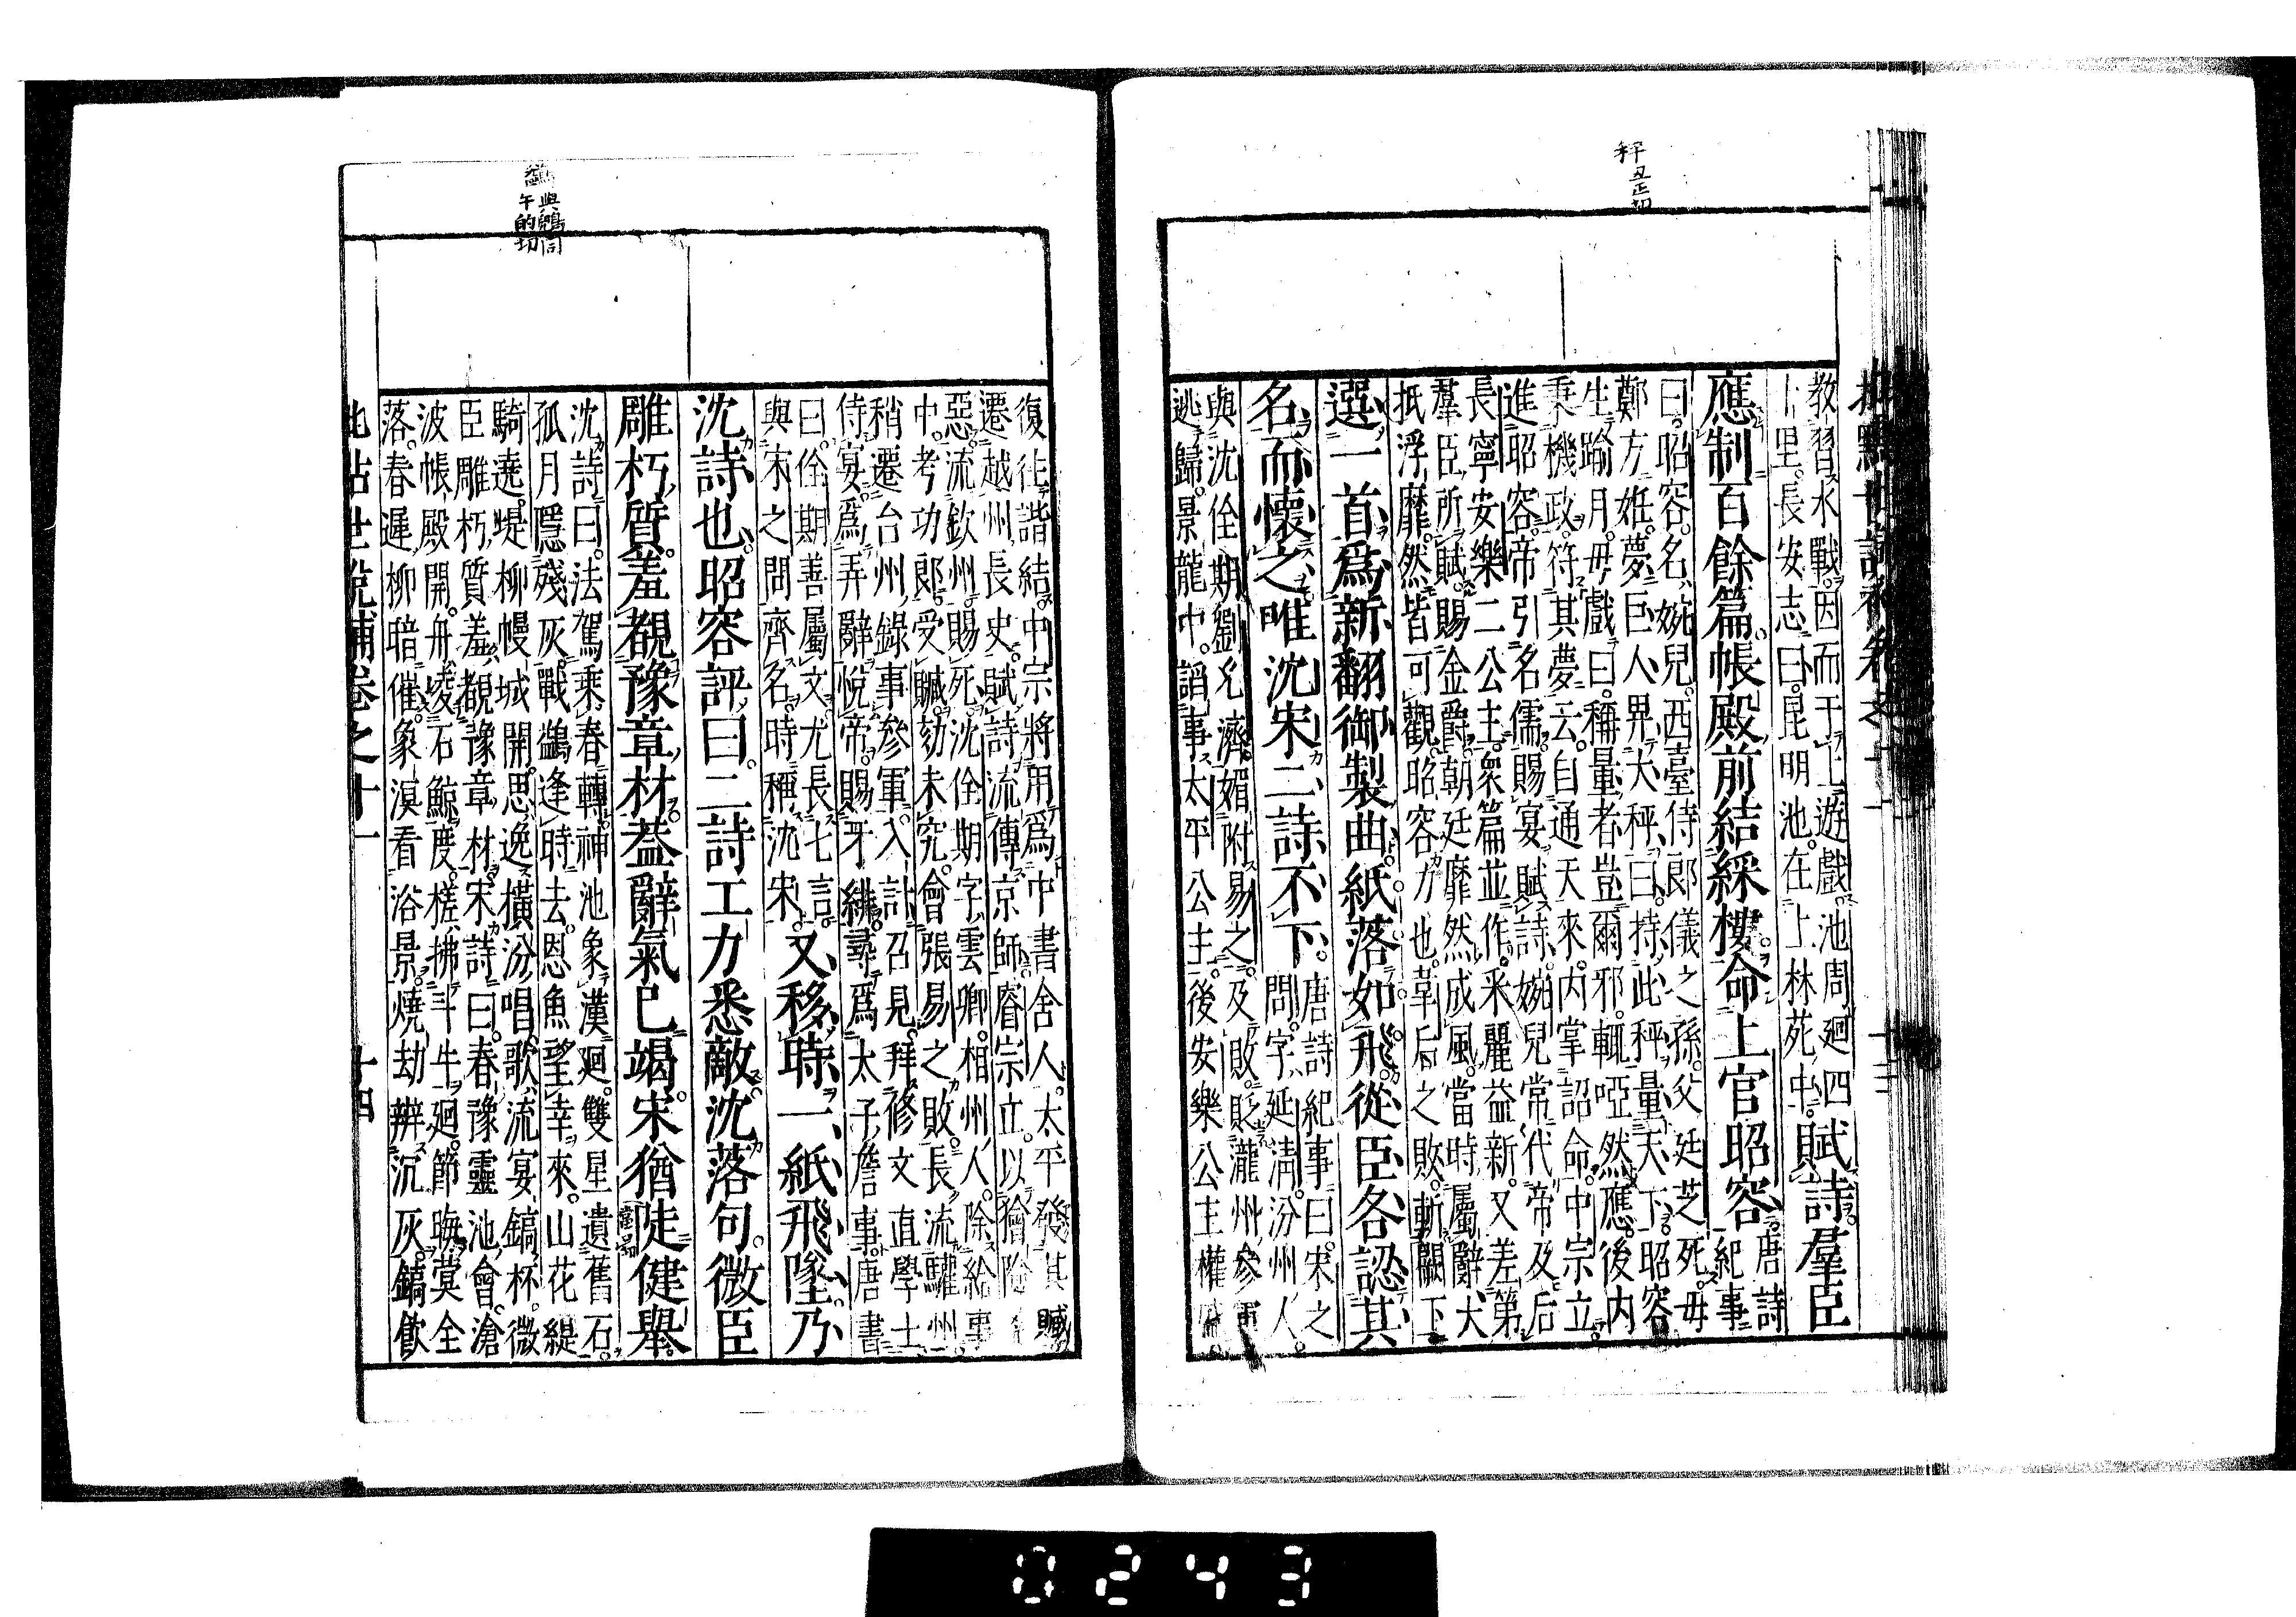 秤丑正切
教習水戰因而于上遊戲池周廻四
十里。長安志曰。昆明池。在上林苑中。賦詩。羣臣
應制百餘篇。帳殿前結綵樓。命上官昭容
唐詩
紀事
曰。昭容。名婉兒。西臺侍郎儀之孫。父廷芝死。母
鄭方姙。夢巨人畀大秤曰。持此秤量天下。昭容
生踰月。母戲曰。稱量者豈爾邪。輒啞然應。後內
秉機政。符其夢云。自通天來。內掌詔命。中宗立。
進昭容。帝引名儒。賜宴賦詩。婉兒常代帝及后
長寧安樂二公主。衆篇並作。采麗益新。又差第
羣臣所賦。賜金爵。朝廷靡然成風。當時屬辭大
抵浮靡。然皆可觀。昭容力也。韋后之敗。斬闕下
選一首爲新翻御製曲。紙落如飛。從臣各認其
名而懷之。唯沈宋二詩不下。
唐詩紀事曰。宋之
問。字延淸。汾州人。
與沈佺期劉允濟媚附易之。及敗。貶瀧州參軍
逃歸。景龍中。諂事太平公主。後安樂公主權
復往諧結。中宗將用爲中書舍人。太平發其贓
遷越州長史。賦詩流傳京師。睿宗立。以獪險
惡。流欽州。賜死。沈佺期字雲卿。相州人。除給事
中。考功郎。受贓劾未究。會張易之敗。長流驩州。
稍遷台州錄事參軍。入計召見。拜修文直學士
侍宴。爲弄辭悅帝。賜牙緋。尋爲太子詹事。唐書
曰。佺期善屬文。尤長七言。
與宋之問齊名。時稱沈宋。又移時。一紙飛墜。乃
沈詩也。昭容評曰。二詩工力悉敵。沈落句。微臣
雕朽質。羞覩豫章材。葢辭氣已竭。宋猶陡健舉。
沈詩曰。法駕乘春轉。神池象漢廻。雙星遺舊石。
孤月隱殘灰。戰鷁逢時去。恩魚望幸來。山花緹
騎遶。堤柳幔城開。思逸橫汾唱。歌流宴鎬杯。微
臣雕朽質。羞覩豫章材。宋詩曰。春豫靈池會。滄
波帳殿開。舟凌石鯨度。槎拂斗牛廻。節晦蓂全
落。春遲柳暗催。象溟看浴景。燒劫辨沉灰。鎬飮
世說補卷之十一
十四
鷁與鶂同
午的切